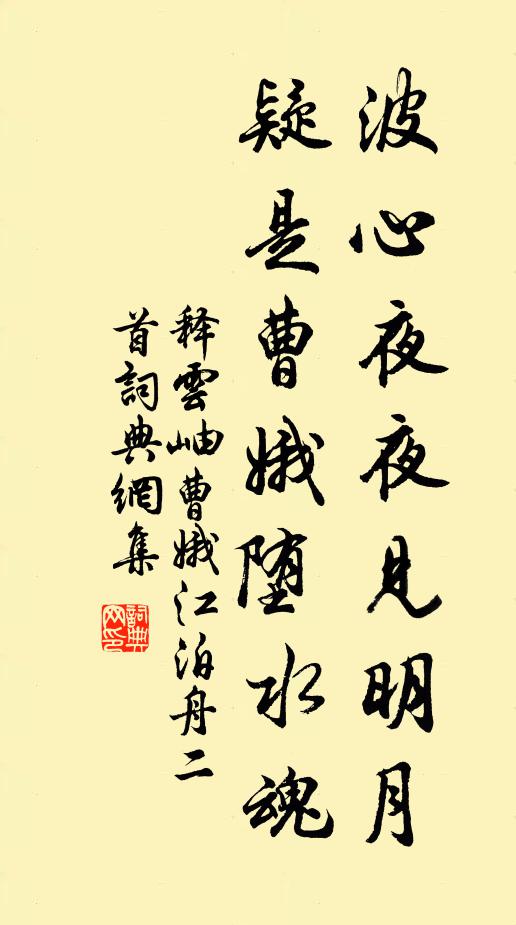 波心夜夜見明月
疑是曹娥堕水魂
释雲岫曹娥江泊舟二
首詞典網集
詞典網印